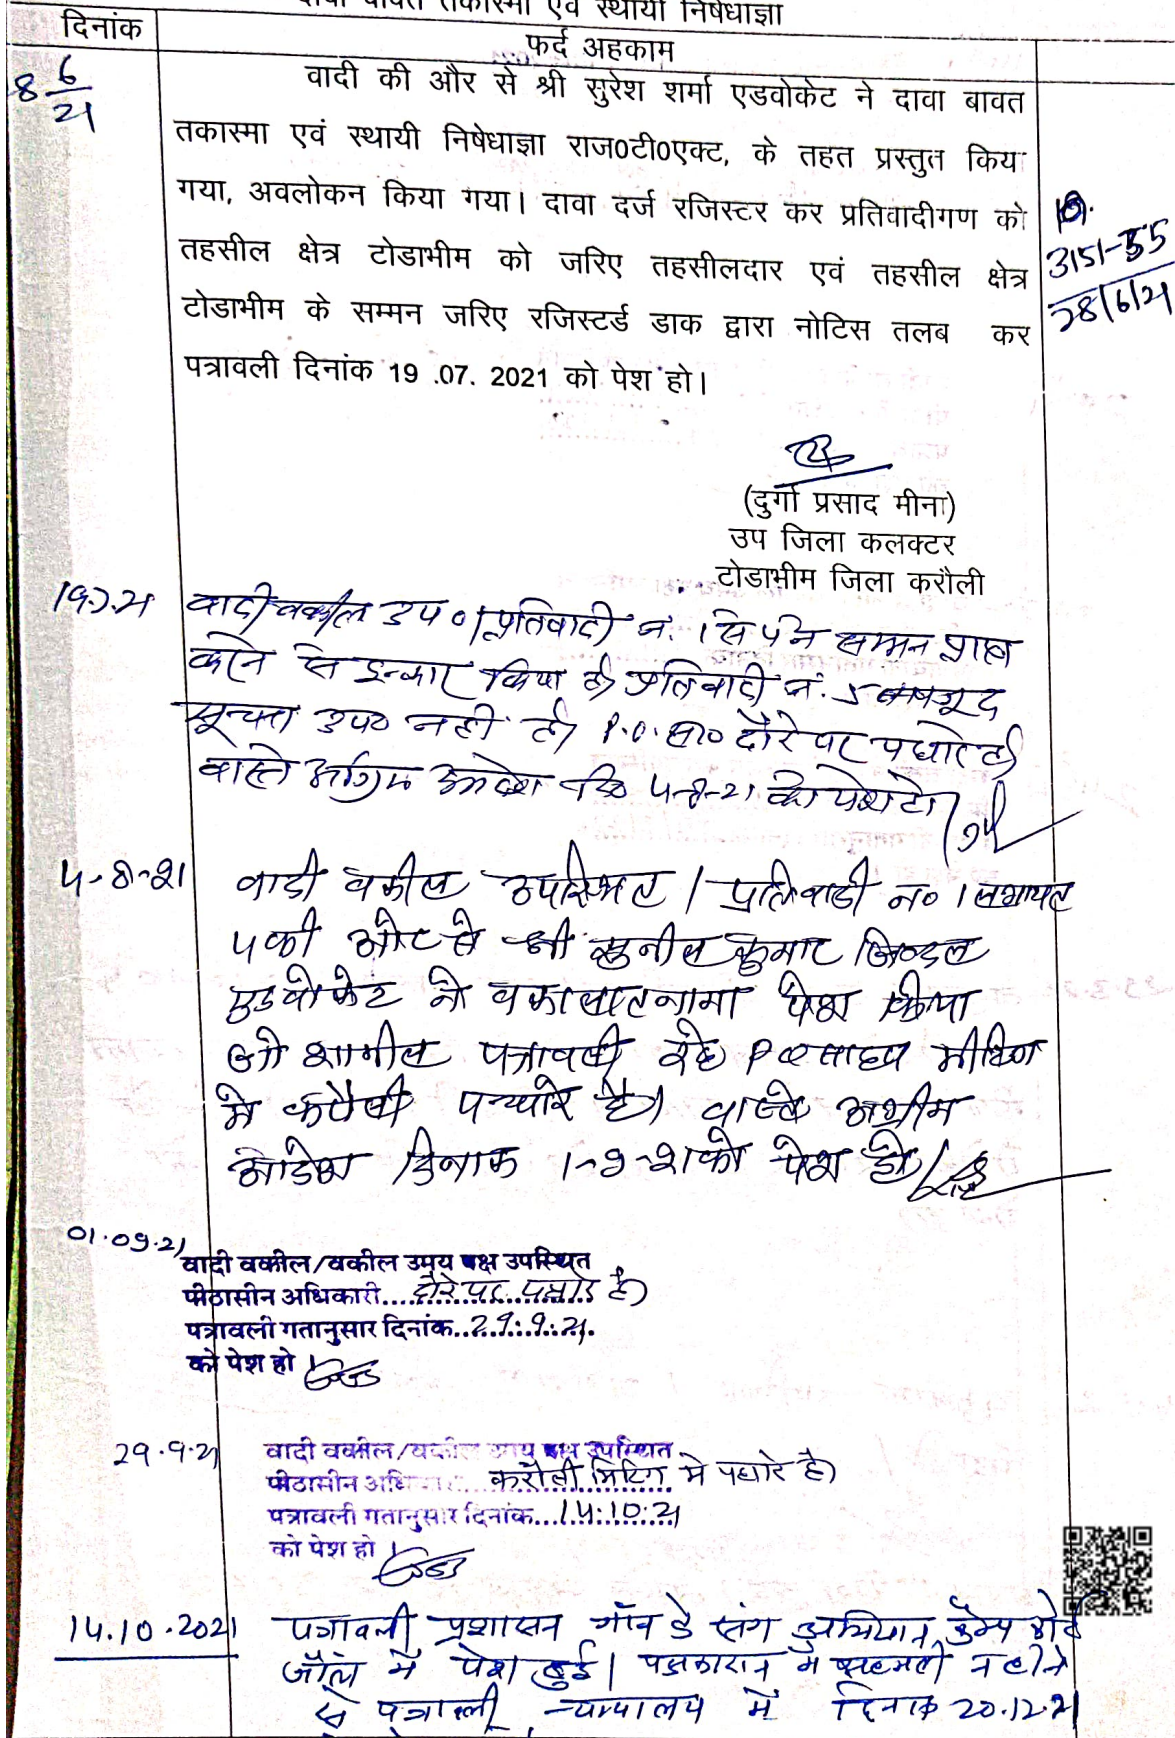 दावा बावत तकास्मा एवं स्थायी निषेधाज्ञा
दिनांक
फर्द अहकाम
8 6/21
वादी की और से श्री सुरेश शर्मा एडवोकेट ने दावा बावत
तकास्मा एवं स्थायी निषेधाज्ञा राज0टी0एक्ट, के तहत प्रस्तुत किय
गया, अवलोकन किया गया। दावा दर्ज रजिस्टर कर प्रतिवादीगण को
तहसील क्षेत्र टोडाभीम को जरिए तहसीलदार एवं तहसील क्षेत्र
टोडाभीम के सम्मन जरिए रजिस्टर्ड डाक द्वारा नोटिस तलब कर
पत्रावली दिनांक 19 .07. 2021 को पेश हो।
3151-55
28/6/21
(दुर्गा प्रसाद मीना)
उप जिला कलक्टर
टोडाभीम जिला करौली
19.7.21
वादी वकील उप0। प्रतिवादी नं. 1 से 4 ने सम्मन प्राप्त
करने से इन्कार किया है। प्रतिवादी नं. 5 बावजूद
सूचना उप0 नहीं है। P.O. सा0 दौरे पर पधारे है।
वास्ते अग्रिम आदेश दि0 4-8-21 को पेश हो।
4-8-21
वादी वकील उपस्थित। प्रतिवादी न० 1 लगायत
4 की ओर से श्री सुनील कुमार जिन्दल
एडवोकेट ने वकालतनामा पेश किया
जो शामील पत्रावली रहे। P O साहब मीटिंग
मे करौली पधारे है। वास्ते अग्रीम
आदेश दिनाक 1-9-21 को पेश हो।
01.09.21
वादी वकील/वकील उभय पक्ष उपस्थित
पीठासीन अधिकारी....दौरे पर पधारे है।
पत्रावली गतानुसार दिनांक..29.9.21.
को पेश हो।
29.9.21
वादी वकील/वकील उभय पक्ष उपस्थित
पीठासीन अधि करौली मिटिंग मे पधारे है।
पत्रावली गतानुसार दिनांक...14.10.21
को पेश हो।
14.10.2021
पत्रावली प्रशासन गाँव के संग अभियान कैम्प
जौल में पेश हुई। पक्षकारान में सहमती न होने
से पत्रावली न्यायालय में दिनाक 20.12.21